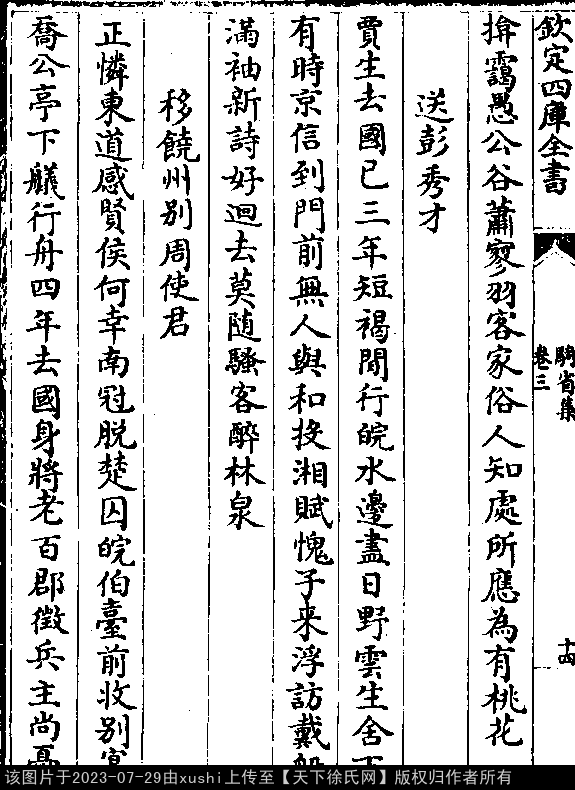 欽定四庫全書
騎省集
卷三
十四
揜靄愚公谷蕭寥羽客家俗人知處所應為有桃花
送彭秀才
賈生去國已三年短褐閒行皖水邊盡日野雲生舍下
有時京信到門前無人與和投湘賦愧子来浮訪戴船
滿袖新詩好迴去莫随騷客醉林泉
移饒州别周使君
正憐東道感賢侯何幸南冠脱楚囚皖伯臺前收别宴
喬公亭下艤行舟四年去國身將老百郡徵兵主尚憂
该图片于2023-07-29由xushi上传至【天下徐氏网】版权归作者所有